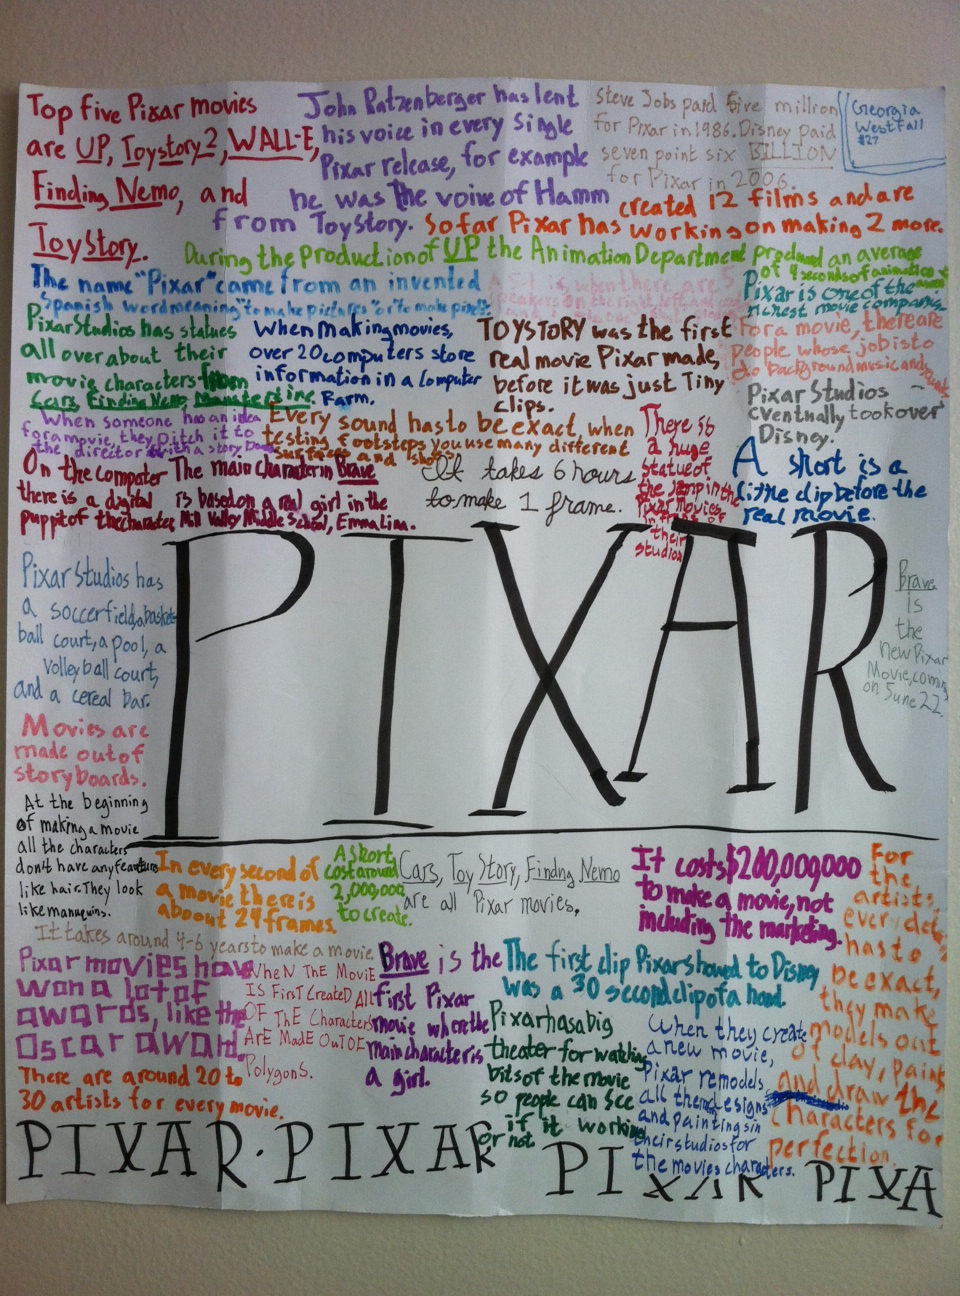 Top five Pixar movies
are UP, Toystory 2, WALL-E,
Finding Nemo, and
ToyStory.
John Ratzenberger has lent
his voice in every single
Pixar release, for example
he was the voive of Hamm
from ToyStory.
Steve Jobs paid five million
for Pixar in 1986. Disney paid
seven point six BILLION
for Pixar in 2006.
Georgia
Westfall
$27
So far Pixar has created 12 films and are
working on making 2 more.
During the Production of UP the Animation Department produced an average
of 4 seconds of animation
The name "Pixar" came from an invented
Spanish word meaning "to make pictures" or "to make pixels".
5.1 is, when there are 5
speakers on the right, left and
Pixar is one of the
richest movie companies.
Pixar Studios has statues
all over about their
movie characters from
Cars, Finding Nemo, Monsters inc.
When making movies,
over 20 computers store
information in a computer
Farm.
TOYSTORY was the first
real movie Pixar made,
before it was just Tiny
clips.
For a movie, there are
people whose job is to
do background music and
Pixar Studios
eventually took over
Disney.
When someone has an idea
for a movie, they pitch it to
the director with a story board
Every sound has to be exact, when
testing footsteps you use many different
surfaces and shoes
There is
a huge
statue of
the lamp in the
Pixar movies
in front of
their
studios
A short is a
little clip before the
real movie.
On the computer
there is a digital
puppit of the character
The main character in Brave
is based on a real girl in the
Mill Valley Middle School, Emma Lina.
It takes 6 hours
to make 1 frame.
PIXAR
Pixar Studios has
a soccer field, a basket
ball court, a pool, a
volleyball court,
and a cereal bar.
Brave
is
the
new Pixar
Movie, coming
on June 22.
Movies are
made out of
story boards.
At the beginning
of making a movie
all the characters
don't have any features
like hair. They look
like manuquins.
In every second of
a movie there is
aboout 24 frames.
A short
cost around
2,000,000
to create.
Cars, Toy Story, Finding Nemo
are all Pixar movies.
It costs $200,000,000
to make a movie, not
including the marketing.
For
the
artists,
every detail
has to
be exact,
they make
models out
of clay, paint
and draw the
characters for
perfection.
It takes around 4-6 years to make a movie.
Pixar movies have
won a lot of
awards, like the
Oscar award.
WHEN THE MOVIE
IS FIRST CREATED All
OF THE Characters
ARE MADE OUT OF
Polygons.
Brave is the
first Pixar
movie where the
main character is
a girl.
The first clip Pixar showed to Disney
was a 30 second clip of a hand.
Pixar has a big
theater for watching
bits of the movie
so people can see
if it working
or not
When they create
a new movie,
Pixar remodels
all the designs
and paintings in
their studios for
the movies characters.
There are around 20 to
30 artists for every movie.
PIXAR · PIXAR PIXAR PIXA